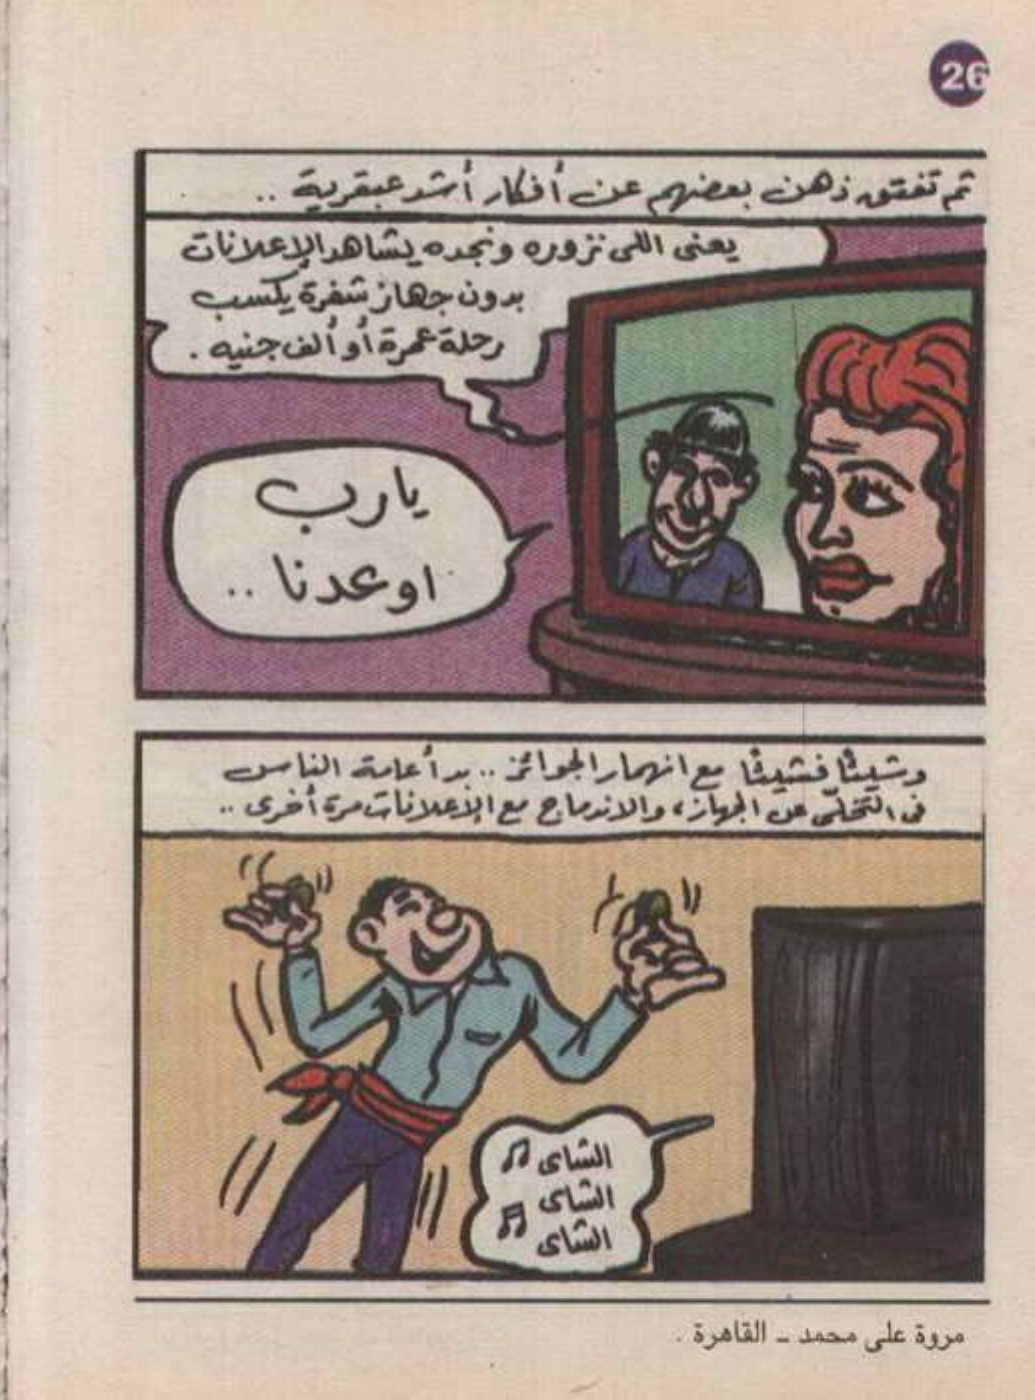 26
ثم تفتق ذهن بعضهم عن أفكار أشد عبقرية ..
يعنى اللى نزوره ونجده يشاهد الإعلانات
بدون جهاز شفرة يكسب
رحلة عمرة أو ألف جنيه .
يارب
اوعدنا ..
وشيئًا فشيئًا مع انهمار الجوائز .. بدأ عامة الناس
فى التخلّى عن الجهاز ، والاندماج مع الإعلانات مرة أخرى ..
الشاى
الشاى
الشاى
مروة على محمد ـ القاهرة .